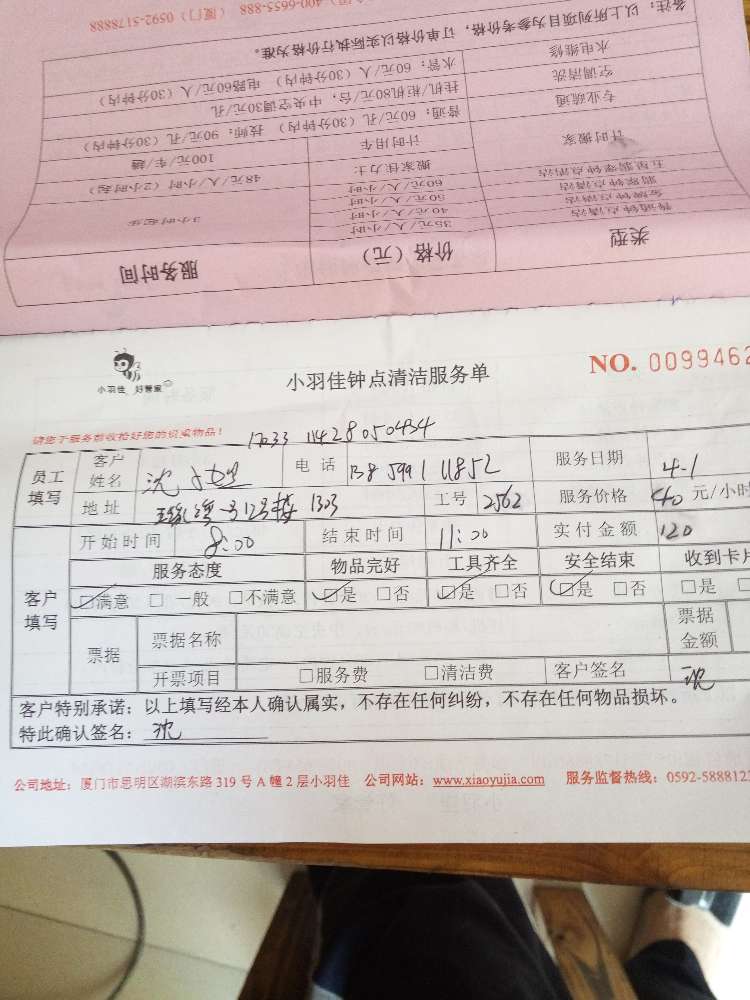 备注：以上所列项目为参考价格，订单价格以实际执行价格为准。
水电维修 水管：60元/人（30分钟内） 电路60元/人（30分钟内）
空调清洗 挂机/柜机80元/台，中央空调30元/孔
专业疏通 普通：60元/孔（30分钟内） 技师：90元/孔（30分钟内）
计时搬家 计时用车 100元/车/趟
搬家佳力士 48元/人/小时（2小时起）
60元/人/小时
50元/人/小时
40元/人/小时
35元/人/小时 3小时起
类型 价格（元） 服务时间
小羽佳 好管家
小羽佳钟点清洁服务单
NO. 0099462
请您于服务前收拾好您的贵重物品！
17033 11428050434
员工填写 客户姓名 沈小姐 电话 1385999111852 服务日期 4-1
地址 1号12号楼 1303 工号 2562 服务价格 40 元/小时
客户填写 开始时间 8:00 结束时间 11:00 实付金额 120
服务态度 物品完好 工具齐全 安全结束 收到卡片
□满意 □一般 □不满意 □是 □否 □是 □否 □是 □否 □是
票据 票据名称 票据金额
开票项目 □服务费 □清洁费 客户签名 沈
客户特别承诺：以上填写经本人确认属实，不存在任何纠纷，不存在任何物品损坏。
特此确认签名： 沈
公司地址：厦门市思明区湖滨东路 319 号 A 幢 2 层小羽佳 公司网站：www.xiaoyujia.com 服务监督热线：0592-588812